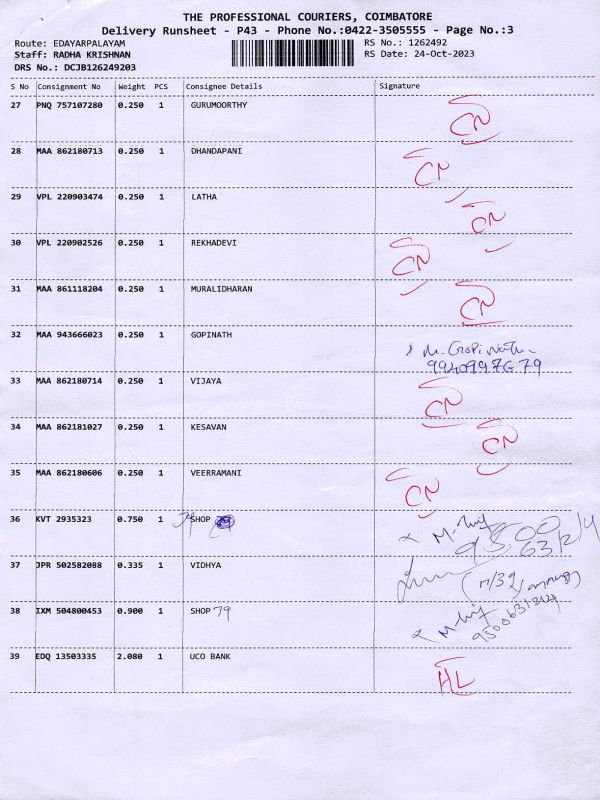 THE PROFESSIONAL COURIERS, COIMBATORE
Delivery Runsheet - P43 - Phone No.:0422-3505555 - Page No.:3
Route: EDAYARPALAYAM RS No.: 1262492
Staff: RADHA KRISHNAN RS Date: 24-Oct-2023
DRS No.: DCJB126249203
S No Consignment No Weight PCS Consignee Details Signature
27 PNQ 757107280 0.250 1 GURUMOORTHY CN
28 MAA 862180713 0.250 1 DHANDAPANI CN
29 VPL 220903474 0.250 1 LATHA CN
30 VPL 220902526 0.250 1 REKHADEVI CN
31 MAA 861118204 0.250 1 MURALIDHARAN CN
32 MAA 943666023 0.250 1 GOPINATH M. Gopinath
33 MAA 862180714 0.250 1 VIJAYA CN
34 MAA 862181027 0.250 1 KESAVAN CN
35 MAA 862180606 0.250 1 VEERRAMANI CN
36 KVT 2935323 0.750 1 SHOP
37 JPR 502582088 0.335 1 VIDHYA
38 IXM 504800453 0.900 1 SHOP 79
39 EDQ 13503335 2.080 1 UCO BANK HL